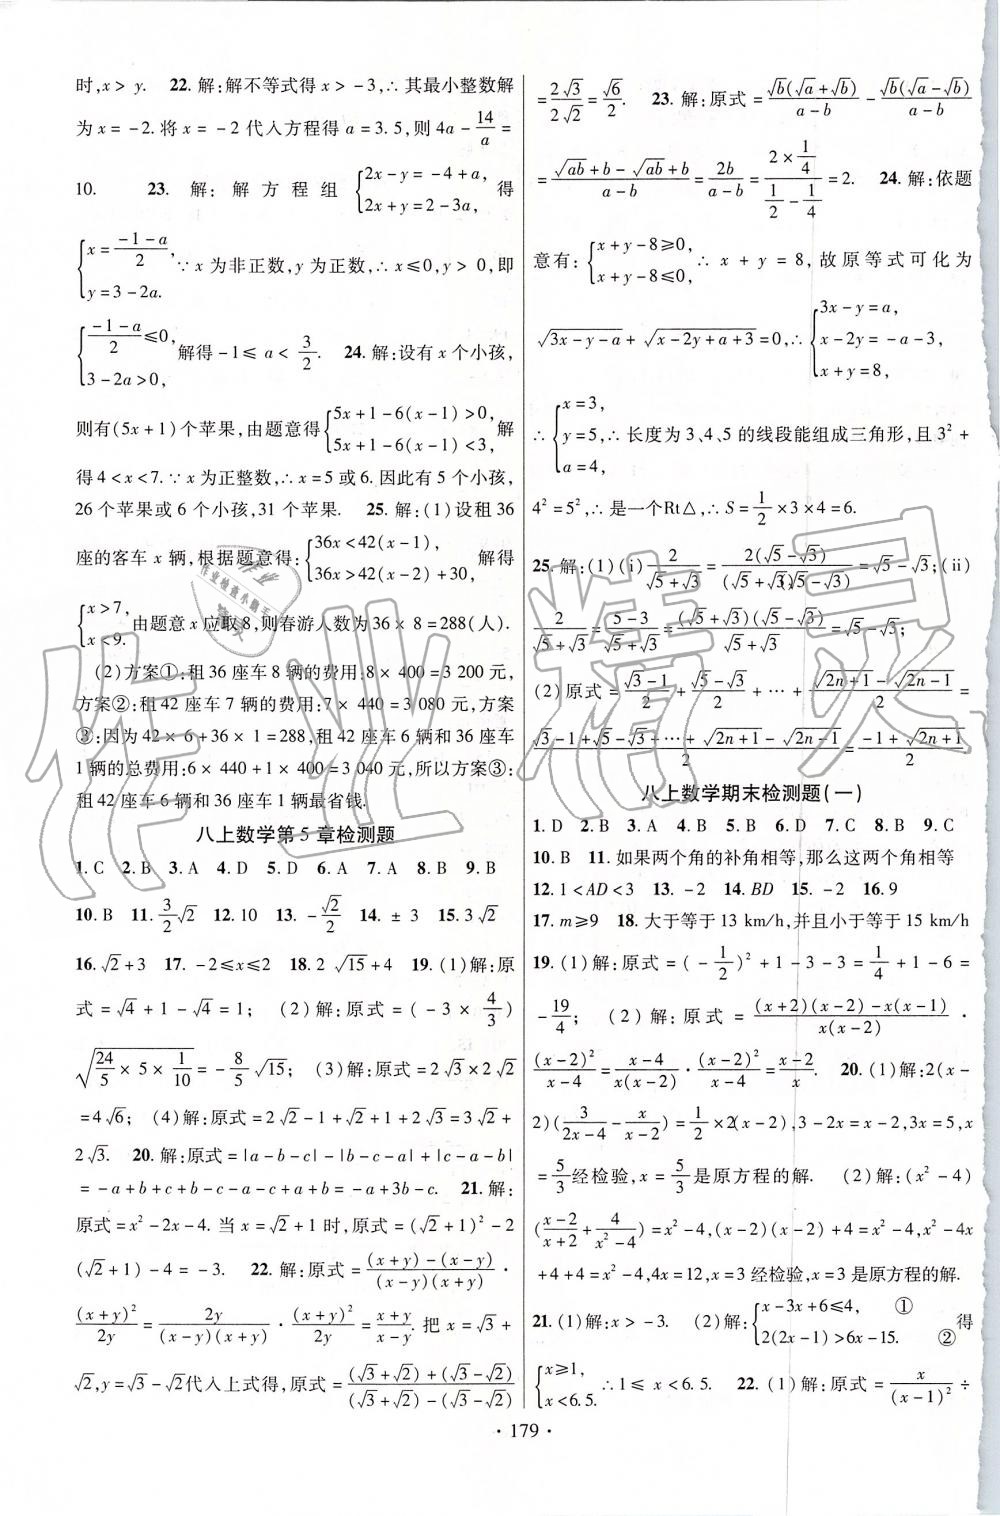 时,x> y.　22. 解:解不等式得 x > −3,∴ 其最小整数解
为 x = −2. 将 x = −2 代入方程得 a = 3.5,则 4a − 14/a =
10.　23. 解:解方程组 {2x − y = −4 + a, 2x + y = 2 − 3a, 得
{x = (−1 − a)/2, y = 3 − 2a. ∵ x 为非正数,y 为正数,∴ x ≤ 0,y > 0,即
{(−1 − a)/2 ≤ 0, 3 − 2a > 0, 解得 −1 ≤ a < 3/2.　24. 解:设有 x 个小孩,
则有(5x + 1)个苹果,由题意得{5x + 1 − 6(x − 1) > 0, 5x + 1 − 6(x − 1) < 3, 解
得 4 < x < 7. ∵ x 为正整数,∴ x = 5 或 6. 因此有 5 个小孩,
26 个苹果或 6 个小孩,31 个苹果.　25. 解:(1)设租 36
座的客车 x 辆,根据题意得:{36x < 42(x − 1), 36x > 42(x − 2) + 30, 解得
{x > 7, x < 9. 由题意 x 应取 8,则春游人数为 36 × 8 = 288(人).
(2)方案①:租 36 座车 8 辆的费用:8 × 400 = 3 200 元,
方案②:租 42 座车 7 辆的费用:7 × 440 = 3 080 元,方案
③:因为 42 × 6 + 36 × 1 = 288,租 42 座车 6 辆和 36 座车
1 辆的总费用:6 × 440 + 1 × 400 = 3 040 元,所以方案③:
租 42 座车 6 辆和 36 座车 1 辆最省钱.
八上数学第 5 章检测题
1. C　2. B　3. A　4. D　5. D　6. A　7. A　8. B　9. B
10. B　11. 3/2 √2　12. 10　13. −√2/2　14. ± 3　15. 3√2
16. √2 + 3　17. −2 ≤ x ≤ 2　18. 2√15 + 4　19. (1)解:原
式 = √4 + 1 − √4 = 1;　(2)解:原式 = (−3 × 4/3)
√(24/5 × 5 × 1/10) = −8/5 √15;　(3)解:原式 = 2√3 × 2√2
= 4√6;　(4)解:原式 = 2√2 − 1 + √2 + 1 + 2√3 = 3√2 +
2√3.　20. 解:原式 = |a − b − c| − |b − c − a| + |c − a − b|
= −a + b + c + b − c − a − c + a + b = −a + 3b − c.　21. 解:
原式 = x² − 2x − 4. 当 x = √2 + 1 时,原式 = (√2 + 1)² − 2
(√2 + 1) − 4 = −3.　22. 解:原式 = ((x + y) − (x − y))/((x − y)(x + y)) ·
(x + y)²/2y = 2y/((x − y)(x + y)) · (x + y)²/2y = (x + y)/(x − y). 把 x = √3 +
√2,y = √3 − √2代入上式得,原式 = ((√3 + √2) + (√3 − √2))/((√3 + √2) − (√3 − √2))
= 2√3/2√2 = √6/2.　23. 解:原式 = √b(√a + √b)/(a − b) − √b(√a − √b)/(a − b)
= (√ab + b − √ab + b)/(a − b) = 2b/(a − b) = (2 × 1/4)/(1/2 − 1/4) = 2.　24. 解:依题
意有:{x + y − 8 ≥ 0, x + y − 8 ≤ 0. ∴ x + y = 8,故原等式可化为
√(3x − y − a) + √(x − 2y + a + 3) = 0,∴ {3x − y = a, x − 2y = −a − 3, x + y = 8,
∴ {x = 3, y = 5, a = 4, ∴ 长度为 3、4、5 的线段能组成三角形,且 3² +
4² = 5²,∴ 是一个Rt△,∴ S = 1/2 × 3 × 4 = 6.
25. 解:(1)(ⅰ) 2/(√5 + √3) = 2(√5 − √3)/((√5 + √3)(√5 − √3)) = √5 − √3;(ⅱ)
2/(√5 + √3) = (5 − 3)/(√5 + √3) = (√5 + √3)(√5 − √3)/(√5 + √3) = √5 − √3;
(2)原式 = (√3 − 1)/2 + (√5 − √3)/2 + ⋯ + (√(2n + 1) − √(2n − 1))/2 =
(√3 − 1 + √5 − √3 + ⋯ + √(2n + 1) − √(2n − 1))/2 = (−1 + √(2n + 1))/2
八上数学期末检测题(一)
1. D　2. B　3. A　4. B　5. D　6. D　7. C　8. B　9. C
10. B　11. 如果两个角的补角相等,那么这两个角相等
12. 1 < AD < 3　13. −2　14. BD　15. −2　16. 9
17. m ≥ 9　18. 大于等于 13 km/h,并且小于等于 15 km/h
19. (1)解:原式 = (−1/2)² + 1 − 3 − 3 = 1/4 + 1 − 6 =
−19/4;　(2)解:原式 = ((x + 2)(x − 2) − x(x − 1))/(x(x − 2)) ·
(x − 2)²/(x − 4) = (x − 4)/(x(x − 2)) · (x − 2)²/(x − 4) = (x − 2)/x.　20. (1)解:2(x −
2)(3/(2x − 4) − x/(x − 2)) = 1/2 × 2(x − 2),3 − 2x = x − 2,3x = 5,x
= 5/3 经检验,x = 5/3 是原方程的解.　(2)解:(x² − 4)
((x − 2)/(x + 2) + 4/(x² − 4)) = x² − 4,(x − 2)(x − 2) + 4 = x² − 4,x² − 4x
+ 4 + 4 = x² − 4,4x = 12,x = 3 经检验,x = 3 是原方程的解.
21. (1)解:x > −3.　(2)解:{x − 3x + 6 ≤ 4, ① 2(2x − 1) > 6x − 15. ② 得
{x ≥ 1, x < 6.5. ∴ 1 ≤ x < 6.5.　22. (1)解:原式 = x/(x − 1)² ÷
· 179 ·
作业精灵
作业
作业检查小助手
精灵